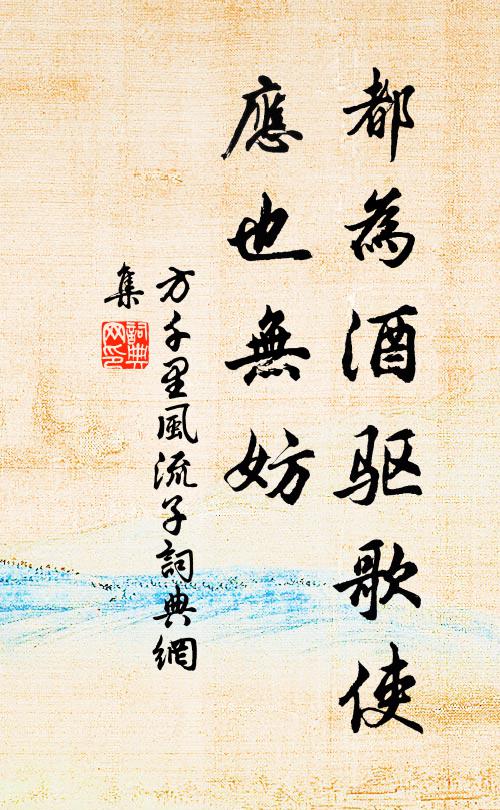 都為酒驱歌使
應也無妨
方千里風流子詞典網
集
詞典網印